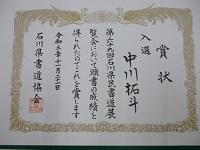 賞状
入選
中川拓斗
第六十九回石川県民書道展
覧会において頭書の成績を
得られたのでこれを賞します
令和五年十一月二十一日
石川県書道協会